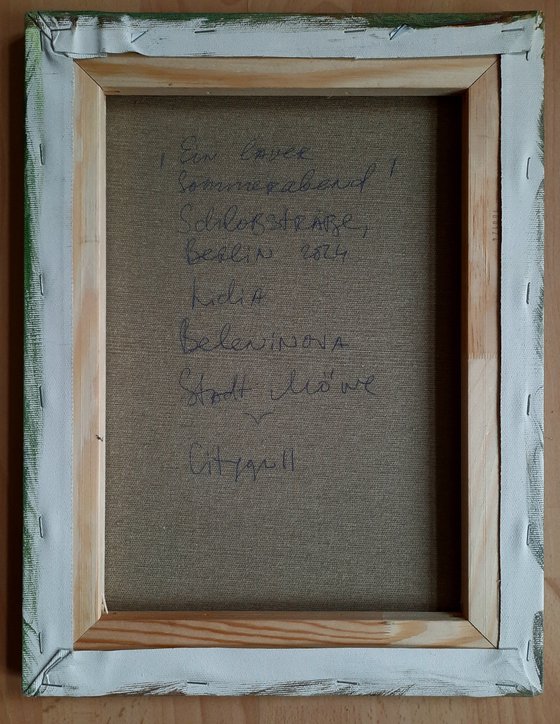 "Ein lauer
Sommerabend"
Schloßstraße,
Berlin 2024
Lidia
Beleninova
Stadt Möwe
Citygull